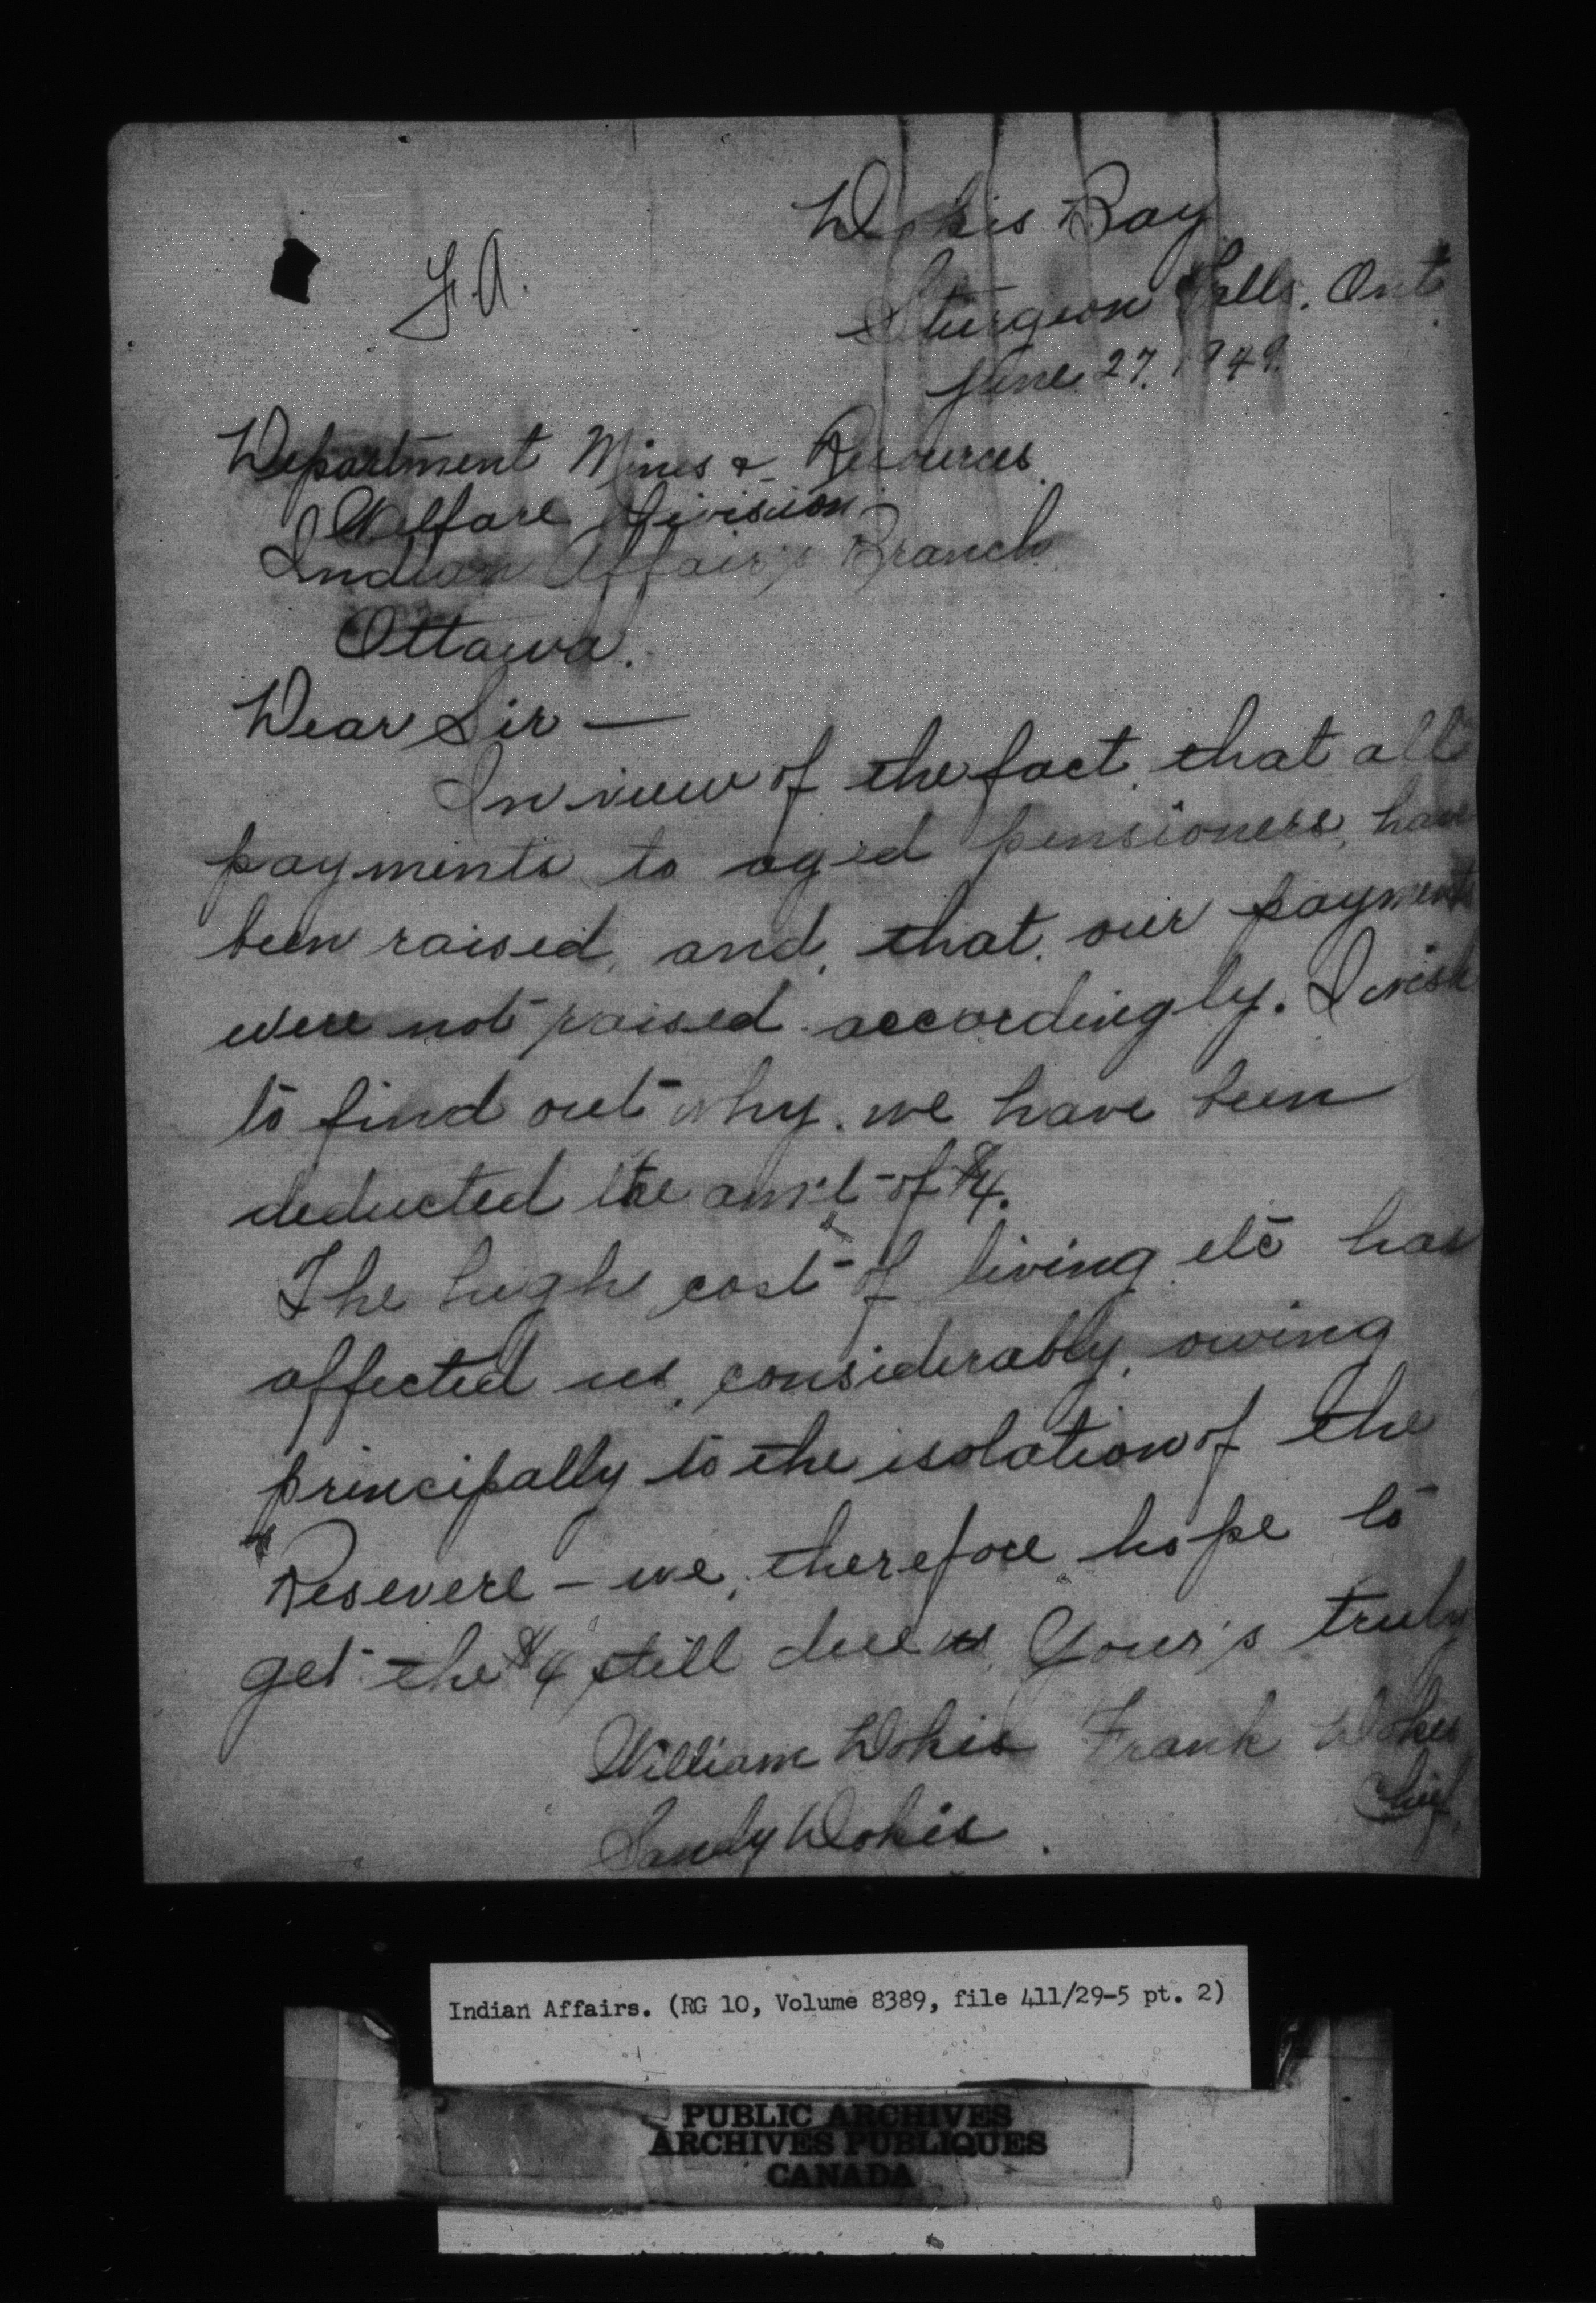 Dokis Bay
F.A.
Sturgeon Falls. Ont.
June 27. 1949.
Department Mines & Resources.
Welfare Division
Indian Affair's Branch.
Ottawa.
Dear Sir —
In view of the fact, that all
payments to aged pensioners, have
been raised, and, that, our payments
were not raised accordingly. I wish
to find out why we have been
deducted the am't of $4.
The high cost of living etc has
affected us, considerably, owing
principally to the isolation of the
Resevere - we, therefore hope to
get the $4 still due us. Your's truly
William Dokis Frank Dokis
Chief.
Sandy Dokis.
Indian Affairs. (RG 10, Volume 8389, file 411/29-5 pt. 2)
PUBLIC ARCHIVES
ARCHIVES PUBLIQUES
CANADA